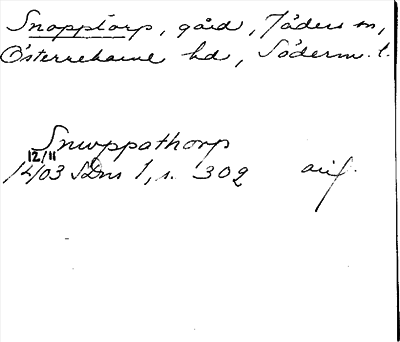 Snopptorp, gård, Jäders sn,
Österrekarne hd, Söderm. l.
Snwppathorp
12/11
1403 SDns 1, s. 302 avf.